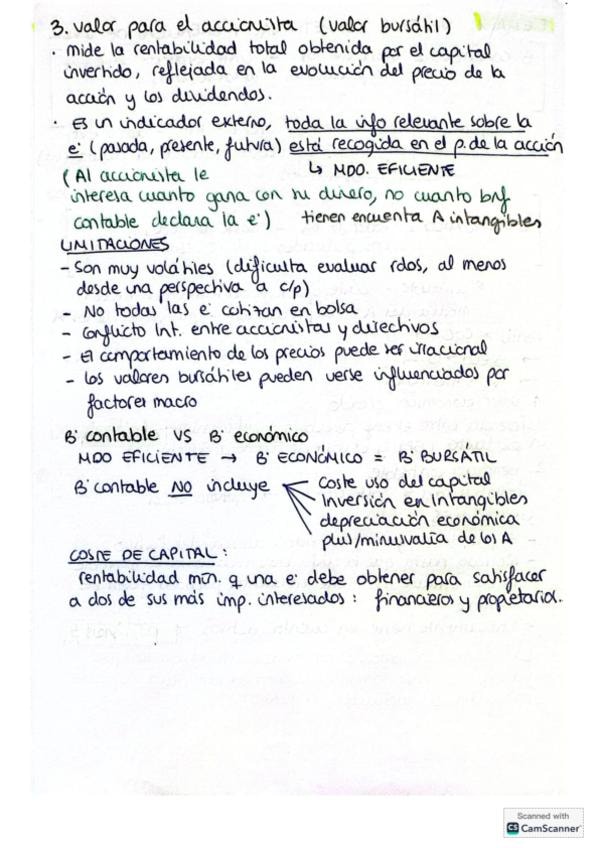 3. valor para el accionista (valor bursátil)
· mide la rentabilidad total obtenida por el capital
invertido, reflejada en la evolución del precio de la
acción y los dividendos.
· Es un indicador externo, toda la info relevante sobre la
e· (pasada, presente, futura) está recogida en el p. de la acción
(Al accionista le ↳ MDO. EFICIENTE
interesa cuanto gana con su dinero, no cuanto bnf
contable declara la e·) tienen encuenta A intangibles
LIMITACIONES
- Son muy volátiles (dificulta evaluar rdos, al menos
desde una perspectiva a c/p)
- No todas las e· cotizan en bolsa
- Conflicto Int. entre accionistas y directivos
- El comportamiento de los precios puede ser irracional
- Los valores bursátiles pueden verse influenciados por
factores macro
B· contable VS B· económico
MDO EFICIENTE → B· ECONÓMICO = B· BURSÁTIL
B· contable NO incluye Coste uso del capital
Inversión en Intangibles
depreciación económica
plus/minusvalía de los A
COSTE DE CAPITAL:
rentabilidad mín. q una e· debe obtener para satisfacer
a dos de sus más imp. interesados: financieros y propietarios.
Scanned with
CS CamScanner